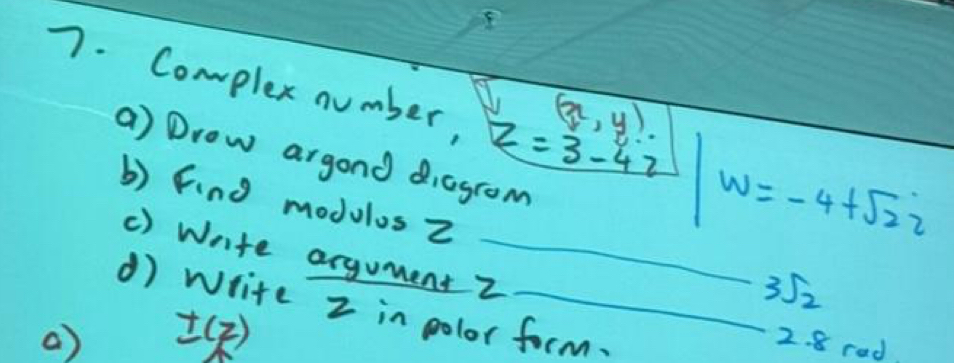 7. Complex number, z = 3 - 4i
(x, y).
w = -4 + √2 i
a) Draw argand diagram
b) Find modulus z 3√2
c) Write argument z 2.8 rad
d) Write z in polar form.
a) Im(z)